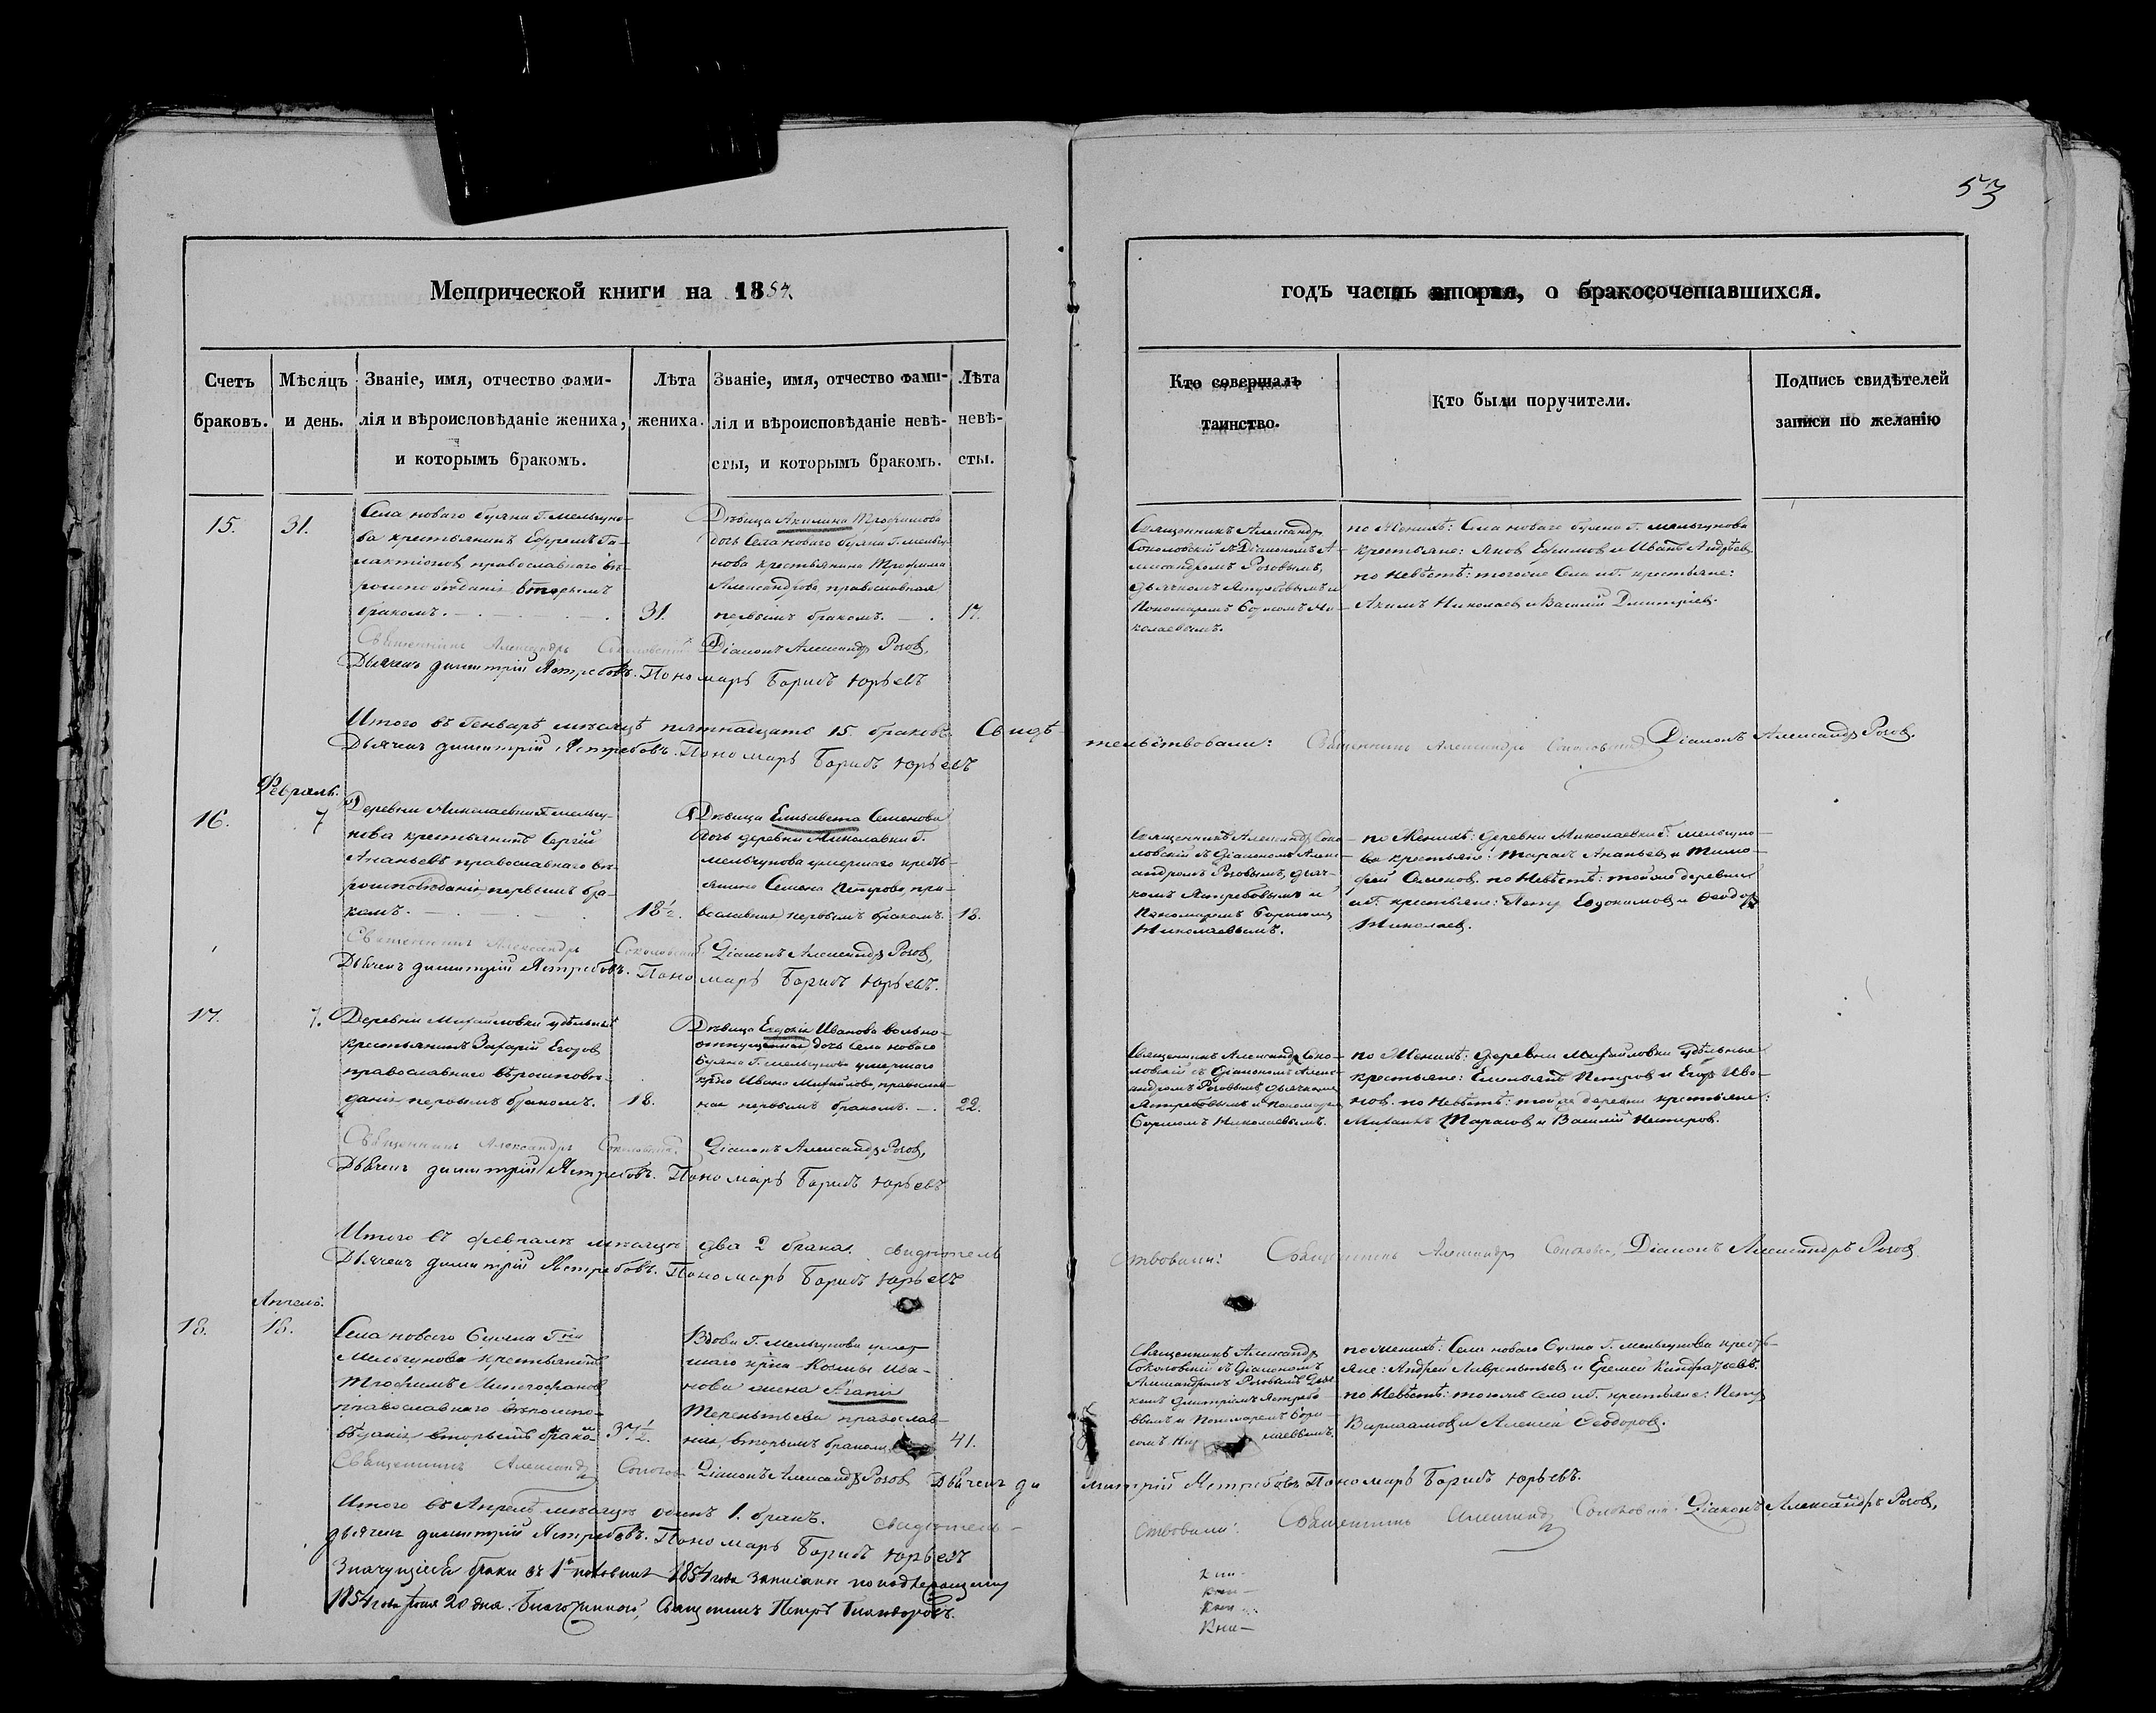 53
Метрической книги на 1854.
годъ часть вторая, о бракосочетавшихся.
Счетъ браковъ.
Мѣсяцъ и день.
Званіе, имя, отчество фами-
лія и вѣроисповѣданіе жениха,
и которымъ бракомъ.
Лѣта жениха.
Званіе, имя, отчество фами-
лія и вѣроисповѣданіе невѣ-
сты, и которымъ бракомъ.
Лѣта невѣ-
сты.
Кто совершалъ
таинство.
Кто были поручители.
Подпись свидѣтелей
записи по желанію
15.
31.
Села новаго Буяна Г. Мельгуно-
ва крестьянинъ Ефремъ Га-
лактіоновъ православнаго вѣ-
роисповѣданія вторымъ
бракомъ.
31.
Дѣвица Акилина Трофимова
дочь Села новаго буяна Г. Мельгу-
нова крестьянина Трофима
Александрова, православная
первымъ бракомъ.
17.
Священникъ Александръ
Соколовскій съ Діакономъ А-
лександромъ Розовымъ,
дьячкомъ Ястребовымъ и
Пономаремъ Борисомъ Ни-
колаевымъ.
по Женихѣ: Села новаго буяна Г. Мельгунова
крестьяне: Яковъ Ефимовъ и Иванъ Андреевъ
по Невѣстѣ: тогоже Села и Г. крестьяне:
Акимъ Николаевъ и Василій Дмитріевъ.
Священникъ Александръ Соколовскій Діаконъ Александръ Розовъ,
Дьячекъ Димитрій Ястребовъ. Пономарь Борисъ Юрьевъ
Итого въ Генварѣ мѣсяцѣ пятнадцать 15. браковъ. Свидѣ-
тельствовали: Священникъ Александръ Соколовскій Діаконъ Александръ Розовъ.
Дьячекъ Димитрій Ястребовъ. Пономарь Борисъ Юрьевъ
Февраль.
16.
7
Деревни Николаевки Г. Мельгу-
нова крестьянинъ Сергій
Ананьевъ православнаго вѣ-
роисповѣданія, первымъ бра-
комъ.
18½.
Дѣвица Елисавета Семенова
дочь деревни Николаевки Г.
Мельгунова умершаго кресть-
янина Семена Петрова, пра-
вославная, первымъ бракомъ.
18.
Священникъ Александръ Соко-
ловскій съ Діакономъ Алекс-
андромъ Розовымъ, дьяч-
комъ Ястребовымъ и
Пономаремъ Борисомъ
Николаевымъ.
по Женихѣ: деревни Николаевки Г. Мельгуно-
ва крестьяне: Тарасъ Ананьевъ и Тимо-
фей Семеновъ. по Невѣстѣ: тойже деревни
и Г. крестьяне: Петръ Евдокимовъ и Феодоръ
Николаевъ.
Священникъ Александръ Соколовскій Діаконъ Александръ Розовъ,
Дьячекъ Димитрій Ястребовъ. Пономарь Борисъ Юрьевъ.
17.
7.
Деревни Михайловки удѣльный
крестьянинъ Захарій Егоровъ
православнаго вѣроисповѣ-
данія первымъ бракомъ.
18.
Дѣвица Евдокія Иванова вольно-
отпущенная дочь Села новаго
Буяна Г. Мельгунова умершаго
кр̃на Ивана Михайлова, православ-
ная первымъ бракомъ.
22.
Священникъ Александръ Соко-
ловскій съ Діакономъ Алекс-
андромъ Розовымъ, дьячкомъ
Ястребовымъ и Пономаремъ
Борисомъ Николаевымъ.
по Женихѣ: деревни Михайловки удѣльные
крестьяне: Емельянъ Петровъ и Егоръ Ива-
новъ. по Невѣстѣ: той же деревни крестьяне:
Михаилъ Тарасовъ и Василій Нестеровъ.
Священникъ Александръ Соколовскій Діаконъ Александръ Розовъ,
Дьячекъ Димитрій Ястребовъ. Пономарь Борисъ Юрьевъ
Итого въ февралѣ мѣсяцѣ два 2 брака. свидѣтель
ствовали: Священникъ Александръ Соколовскій Діаконъ Александръ Розовъ
Дьячекъ Димитрій Ястребовъ. Пономарь Борисъ Юрьевъ
Апрель.
18.
18.
Села новаго Буяна Гна
Мельгунова крестьянинъ
Трофимъ Митрофановъ
православнаго вѣроиспо-
вѣданія, вторымъ бракомъ
37½.
Вдова Г. Мельгунова умер-
шаго кр̃на Козмы Ива-
нова жена Агапія
Терентьева православ-
ная, вторымъ бракомъ
41.
Священникъ Александръ
Соколовскій съ Діакономъ
Александромъ Розовымъ Дьяч-
комъ Димитріемъ Ястребо-
вымъ и Пономаремъ Бори-
сомъ Ни колаевымъ.
по женихѣ: Села новаго Буяна Г. Мельгунова кресть-
яне: Андрей Лаврентьевъ и Еремей Кондратьевъ
по Невѣстѣ: тогоже села и Г. крестьяне: Петръ
Варлаамовъ и Алексій Феодоровъ.
Священникъ Александръ Соколов Діаконъ Александръ Розовъ Дьячекъ Ди
митрій Ястребовъ Пономарь Борисъ Юрьевъ.
Итого въ Апрелѣ мѣсяцѣ одинъ 1. бракъ. свидѣтель-
ствовали: Священникъ Александръ Соколовскій Діаконъ Александръ Розовъ,
Дьячекъ Димитрій Ястребовъ. Пономарь Борисъ Юрьевъ
Значущіеся браки въ 1й половинѣ 1854 года записаны по надлежащему
1854 года Іюня 20 дня. Благочинный, Священникъ Петръ